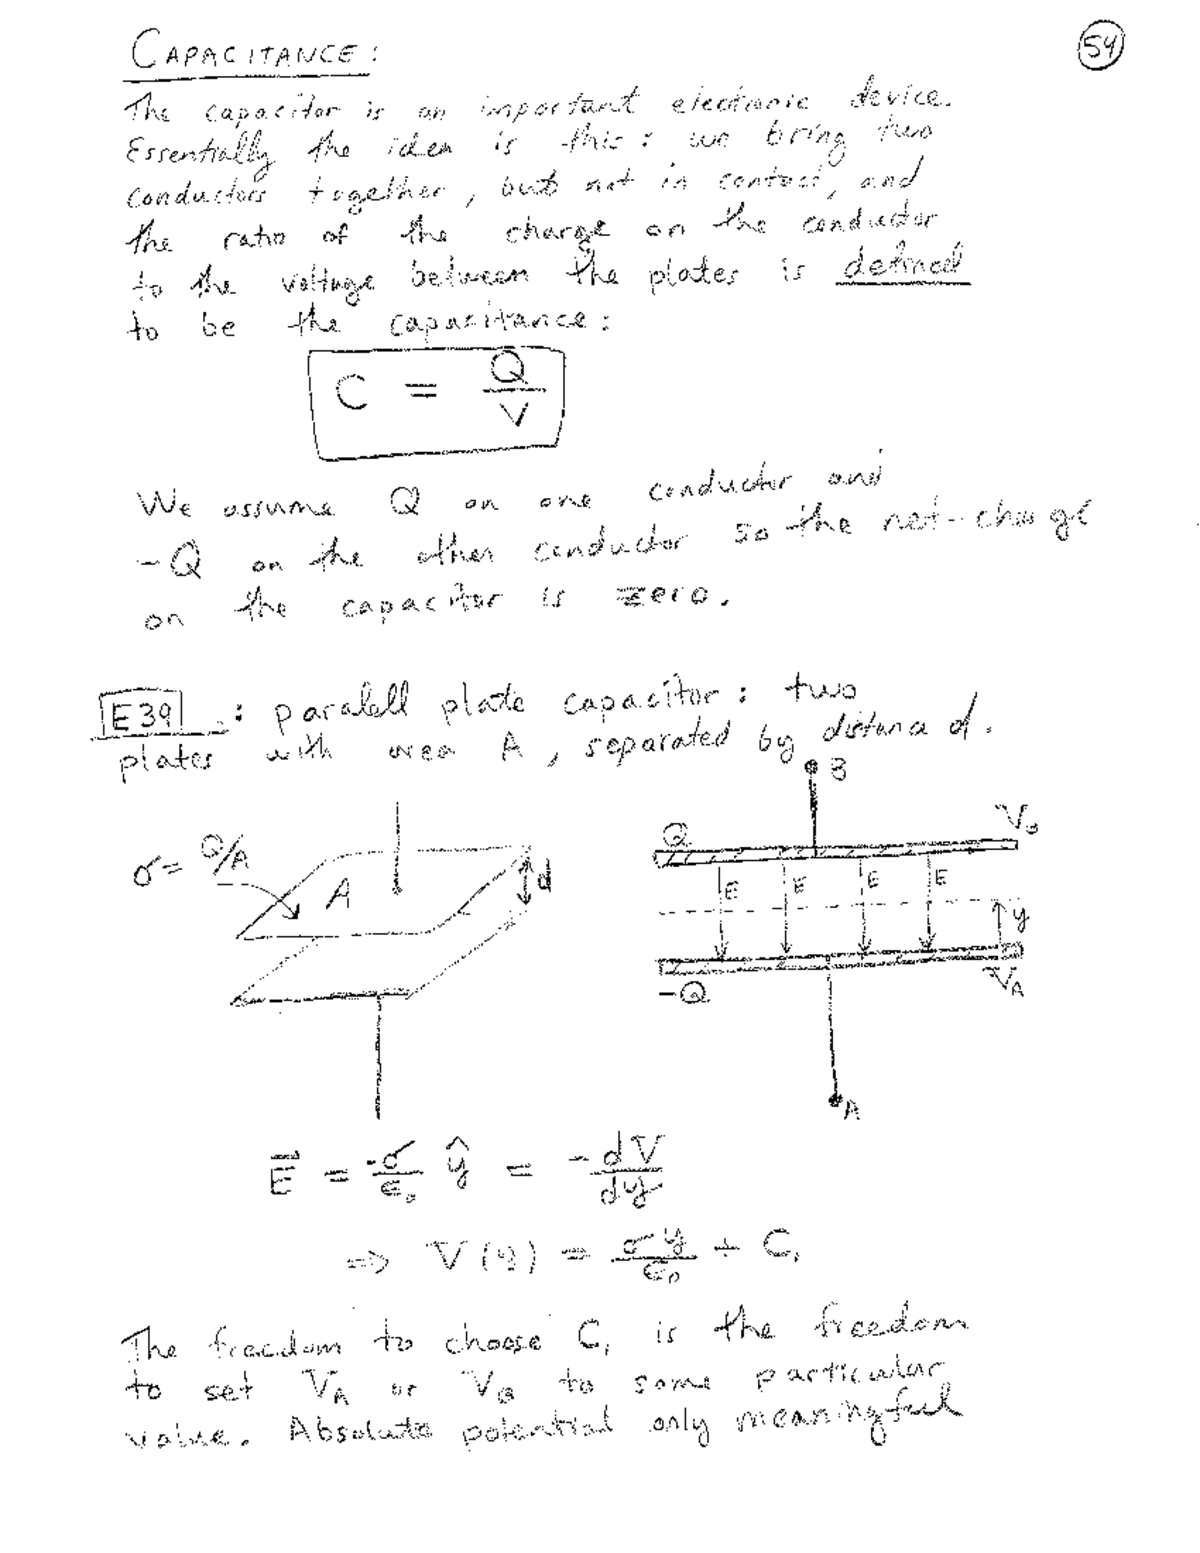 CAPACITANCE:
54
The capacitor is an important electronic device.
Essentially the idea is this: we bring two
conductors together, but not in contact, and
the ratio of the charge on the conductor
to the voltage between the plates is defined
to be the capacitance:
C = Q/V
We assume Q on one conductor and
-Q on the other conductor so the net-charge
on the capacitor is zero.
E39: paralell plate capacitor: two
plates with area A, separated by distance d.
B
σ = Q/A
A
d
Q
V_B
E E E E
y
-Q
V_A
A
E⃗ = -σ/ε₀ ŷ = -dV/dy
⇒ V(y) = σy/ε₀ + C₁
The freedom to choose C₁ is the freedom
to set V_A or V_B to some particular
value. Absolute potential only meaningful